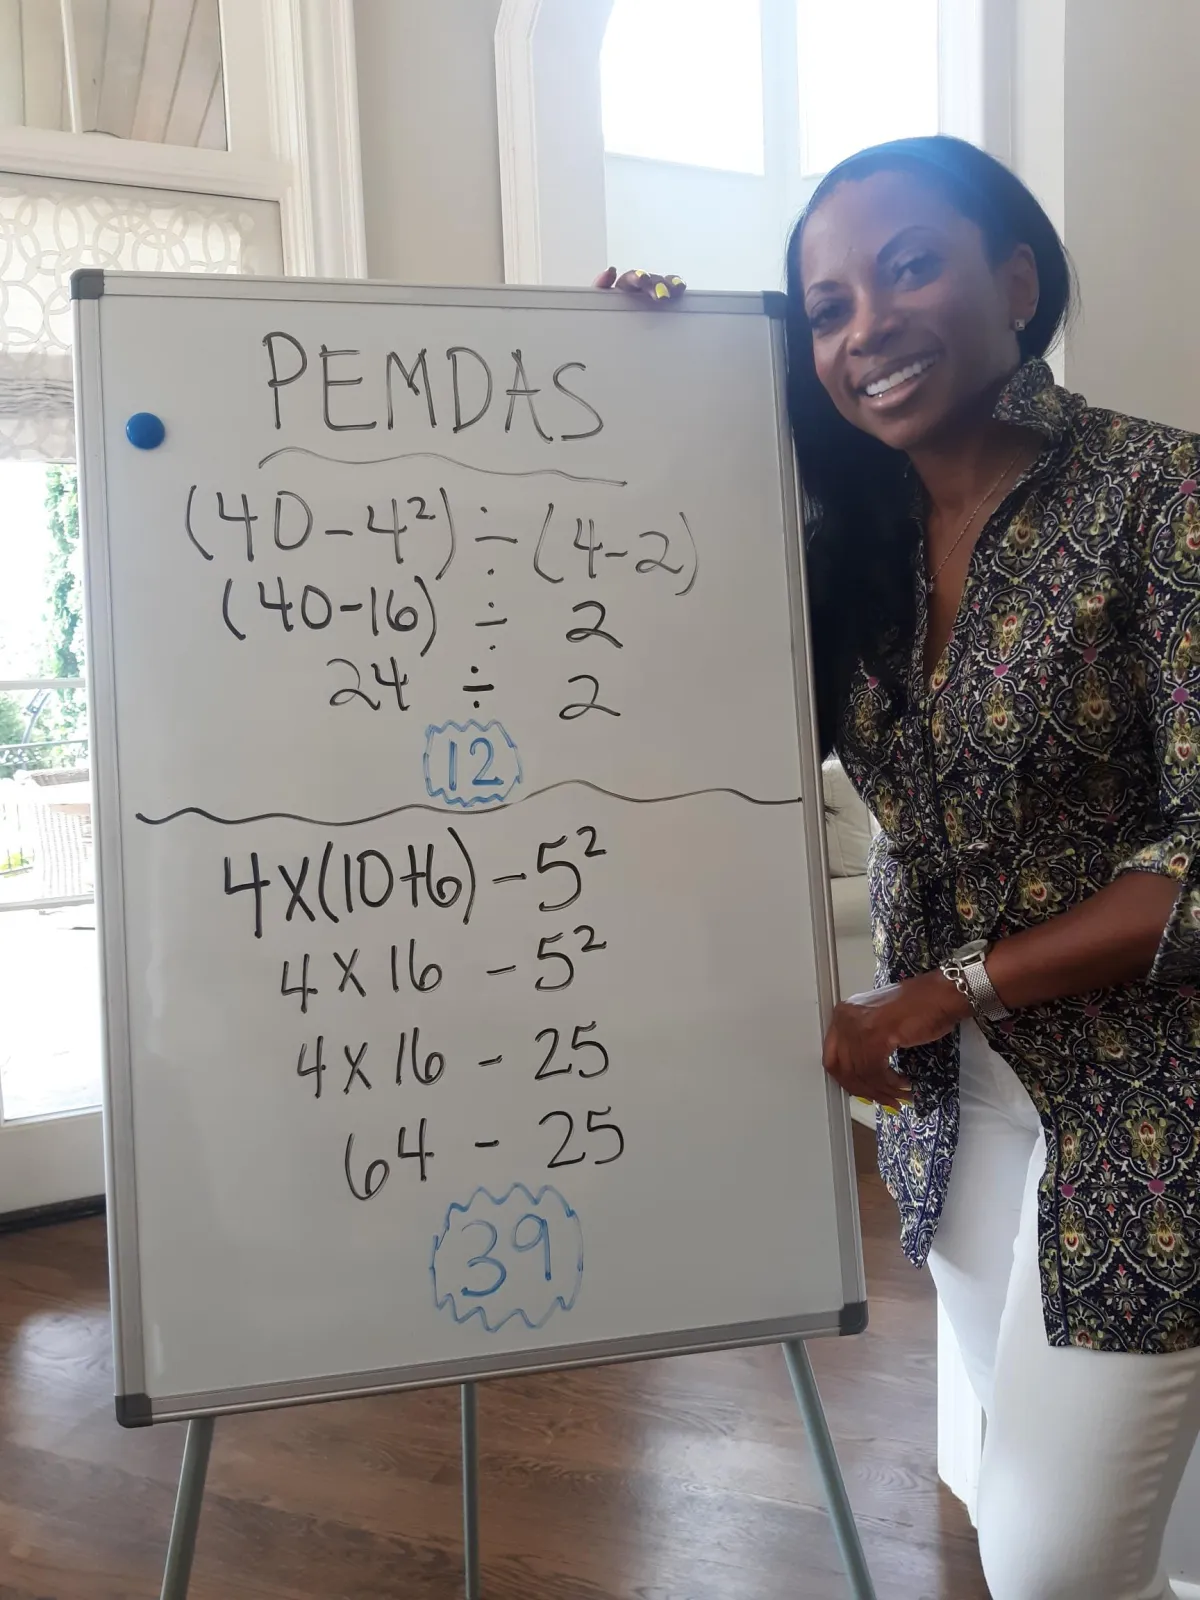 PEMDAS
(40-4²) ÷ (4-2)
(40-16) ÷ 2
24 ÷ 2
12
4x(10+6) - 5²
4 x 16 - 5²
4 x 16 - 25
64 - 25
39